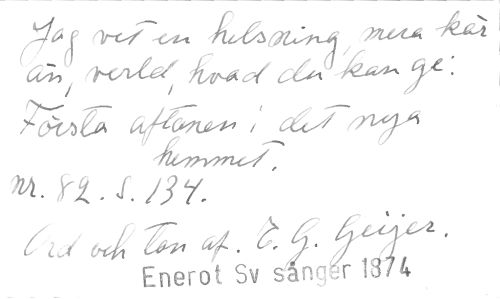 Jag vet en helsning, mera kär
än, verld, hvad du kan ge:
Första aftonen i det nya
hemmet.
nr. 82. s. 134.
Ord och ton af. E. G. Geijer.
Enerot Sv sånger 1874